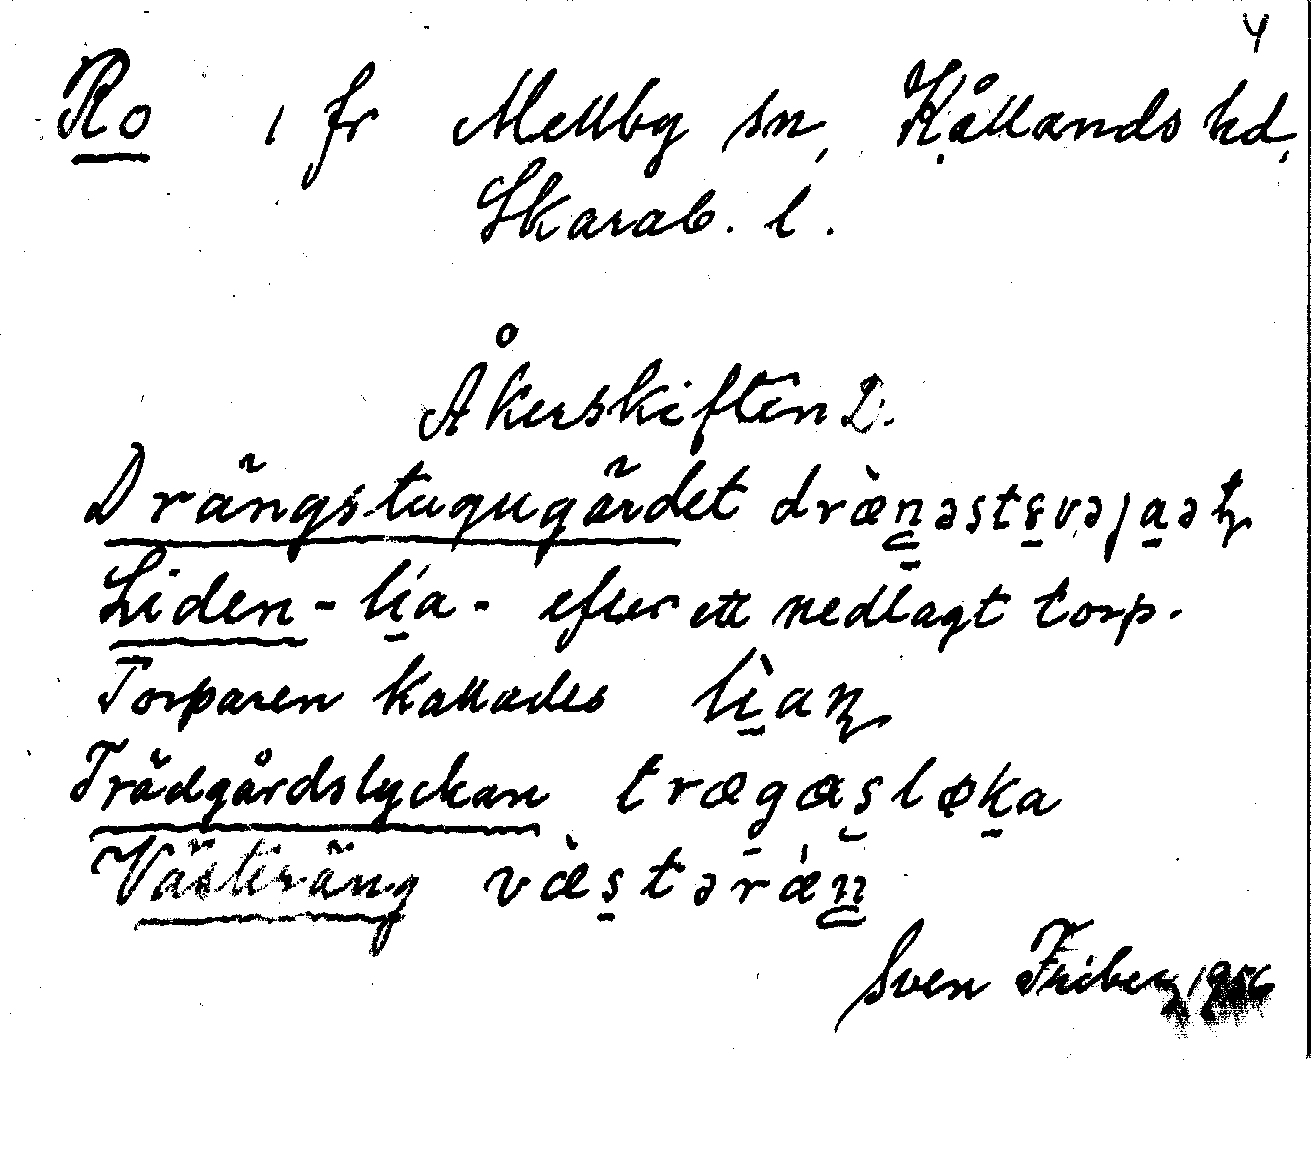 4
Ro 1 fr Mellby sn, Kållands hd,
Skarab. l.
Åkerskiften 2.
Drängstugugärdet
Liden - lia - efter ett nedlagt torp.
Torparen kallades lìaɳ
Trädgårdslyckan trægasløka
Västeräng væ̀stəræŋ
Sven Friberg 1956